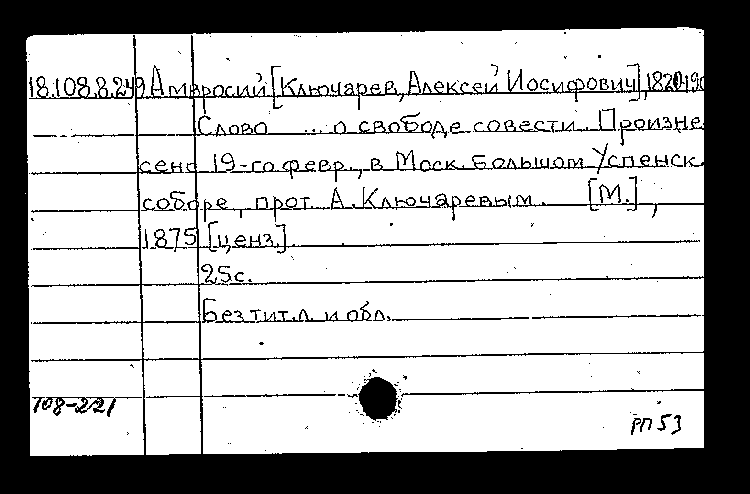 18.108.8.249 Амвросий [Ключарев, Алексей Иосифович], 1820-190
Слово ... о свободе совести. Произне
сено 19-го февр., в Моск. Большом Успенск.
соборе, прот. А. Ключаревым. [М.],
1875 [ценз.]
25с.
Без тит.л. и обл.
108-221
РП 53